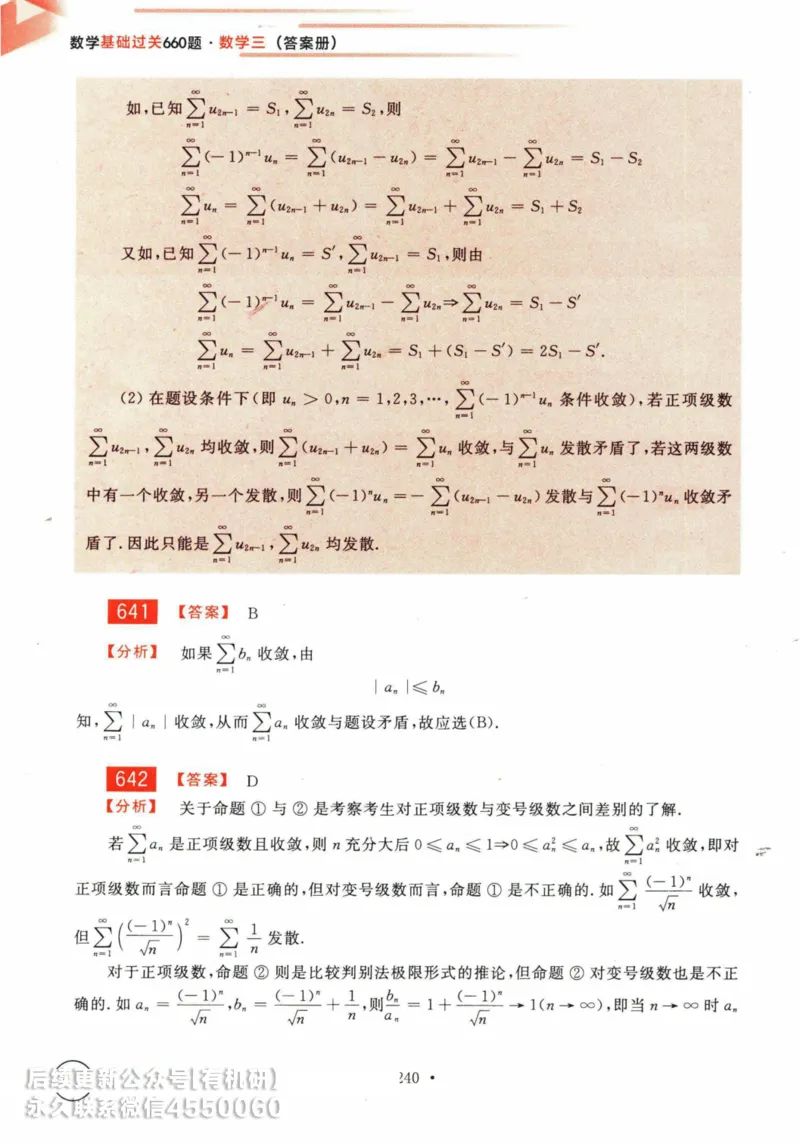 数学基础过关660题·数学三（答案册）
如,已知 $\sum_{n=1}^{\infty} u_{2n-1} = S_1, \sum_{n=1}^{\infty} u_{2n} = S_2$,则
$\sum_{n=1}^{\infty} (-1)^{n-1} u_n = \sum_{n=1}^{\infty} (u_{2n-1} - u_{2n}) = \sum_{n=1}^{\infty} u_{2n-1} - \sum_{n=1}^{\infty} u_{2n} = S_1 - S_2$
$\sum_{n=1}^{\infty} u_n = \sum_{n=1}^{\infty} (u_{2n-1} + u_{2n}) = \sum_{n=1}^{\infty} u_{2n-1} + \sum_{n=1}^{\infty} u_{2n} = S_1 + S_2$
又如,已知 $\sum_{n=1}^{\infty} (-1)^{n-1} u_n = S', \sum_{n=1}^{\infty} u_{2n-1} = S_1$,则由
$\sum_{n=1}^{\infty} (-1)^{n-1} u_n = \sum_{n=1}^{\infty} u_{2n-1} - \sum_{n=1}^{\infty} u_{2n} \Rightarrow \sum_{n=1}^{\infty} u_{2n} = S_1 - S'$
$\sum_{n=1}^{\infty} u_n = \sum_{n=1}^{\infty} u_{2n-1} + \sum_{n=1}^{\infty} u_{2n} = S_1 + (S_1 - S') = 2S_1 - S'.$
(2) 在题设条件下(即 $u_n > 0, n = 1,2,3,\cdots, \sum_{n=1}^{\infty} (-1)^{n-1} u_n$ 条件收敛),若正项级数
$\sum_{n=1}^{\infty} u_{2n-1}, \sum_{n=1}^{\infty} u_{2n}$ 均收敛,则 $\sum_{n=1}^{\infty} (u_{2n-1} + u_{2n}) = \sum_{n=1}^{\infty} u_n$ 收敛,与 $\sum_{n=1}^{\infty} u_n$ 发散矛盾了,若这两级数
中有一个收敛,另一个发散,则 $\sum_{n=1}^{\infty} (-1)^n u_n = -\sum_{n=1}^{\infty} (u_{2n-1} - u_{2n})$ 发散与 $\sum_{n=1}^{\infty} (-1)^n u_n$ 收敛矛
盾了.因此只能是 $\sum_{n=1}^{\infty} u_{2n-1}, \sum_{n=1}^{\infty} u_{2n}$ 均发散.
641 【答案】 B
【分析】 如果 $\sum_{n=1}^{\infty} b_n$ 收敛,由
$| a_n | \leqslant b_n$
知, $\sum_{n=1}^{\infty} | a_n |$ 收敛,从而 $\sum_{n=1}^{\infty} a_n$ 收敛与题设矛盾,故应选(B).
642 【答案】 D
【分析】 关于命题 ① 与 ② 是考察考生对正项级数与变号级数之间差别的了解.
若 $\sum_{n=1}^{\infty} a_n$ 是正项级数且收敛,则 $n$ 充分大后 $0 \leqslant a_n \leqslant 1 \Rightarrow 0 \leqslant a_n^2 \leqslant a_n$,故 $\sum_{n=1}^{\infty} a_n^2$ 收敛,即对
正项级数而言命题 ① 是正确的,但对变号级数而言,命题 ① 是不正确的.如 $\sum_{n=1}^{\infty} \frac{(-1)^n}{\sqrt{n}}$ 收敛,
但 $\sum_{n=1}^{\infty} \left( \frac{(-1)^n}{\sqrt{n}} \right)^2 = \sum_{n=1}^{\infty} \frac{1}{n}$ 发散.
对于正项级数,命题 ② 则是比较判别法极限形式的推论,但命题 ② 对变号级数也是不正
确的.如 $a_n = \frac{(-1)^n}{\sqrt{n}}, b_n = \frac{(-1)^n}{\sqrt{n}} + \frac{1}{n}$,则 $\frac{b_n}{a_n} = 1 + \frac{(-1)^n}{\sqrt{n}} \to 1 (n \to \infty)$,即当 $n \to \infty$ 时 $a_n$
240 ·
后续更新公众号[有机研]
永久联系微信4550060